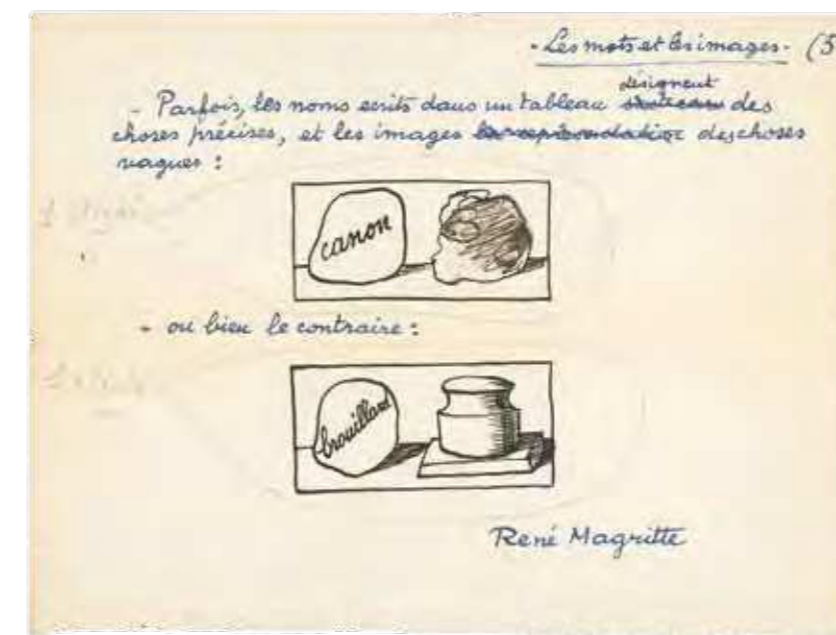 - Les mots et les images - (5
désignent
- Parfois, les noms écrits dans un tableau des
choses précises, et les images des choses
vagues :
canon
- ou bien le contraire :
brouillard
René Magritte